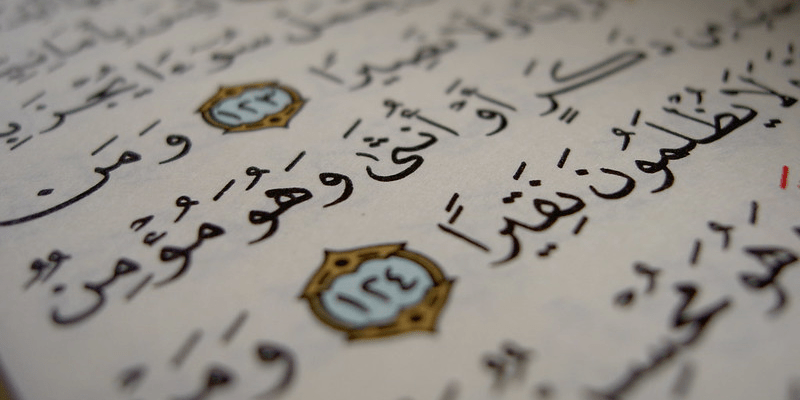 يَعْمَلْ سُوٓءًا يُجْزَ
وَلَا نَصِيرًا ١٢٣ وَمَن
مِن ذَكَرٍ أَوْ أُنثَىٰ وَهُوَ مُؤْمِنٌ
يُظْلَمُونَ نَقِيرًا ١٢٤ وَمَنْ
وَهُوَ مُحْسِنٌ